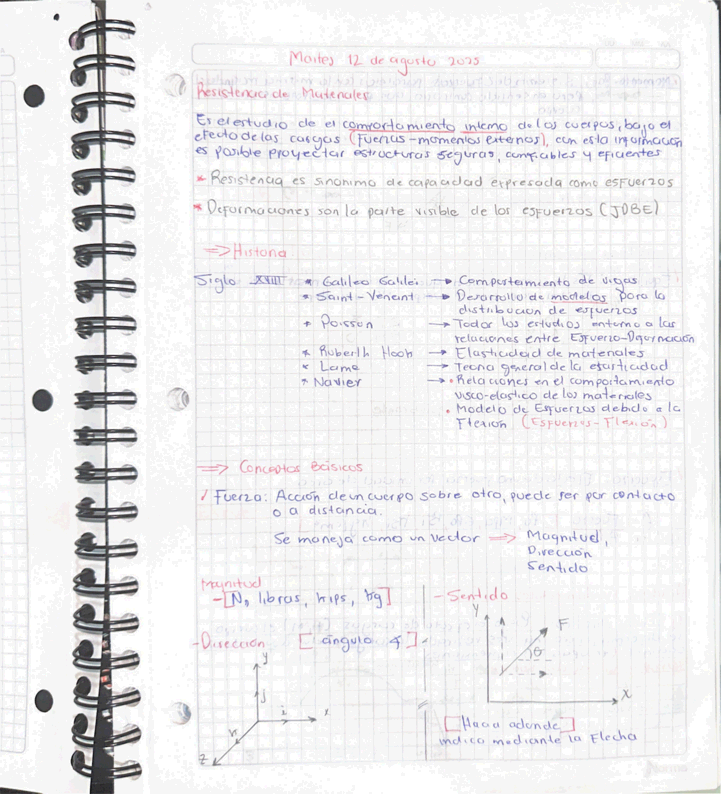 Martes 12 de agosto 2025
Resistencia de Materiales
Es el estudio de el comportamiento interno de los cuerpos, bajo el
efecto de las cargas (Fuerzas-momentos externos), con esta información
es posible proyectar estructuras seguras, confiables y eficientes
* Resistencia es sinonimo de capacidad expresada como esfuerzos
* Deformaciones son la parte visible de los esfuerzos (JDBE)
⇒ Historia
Siglo XVIII * Galileo Galilei → Comportamiento de vigas
* Saint-Venant → Desarrollo de modelos para la
distribucion de esfuerzos
* Poisson → Todos los estudios entorno a las
relaciones entre Esfuerzo-Deformación
* Roberth Hook → Elasticidad de materiales
* Lame → Teoria general de la elasticidad
* Navier → • Relaciones en el comportamiento
visco-elastico de los materiales
• Modelo de Esfuerzos debido a la
Flexion (Esfuerzos-Flexión)
⇒ Conceptos Básicos
✓ Fuerza: Acción de un cuerpo sobre otro, puede ser por contacto
o a distancia.
Se maneja como un vector ⇒ Magnitud,
Dirección
Sentido
Magnitud
-[N, libras, kips, kg]
-Dirección [ángulo ∡]
y
j
i
x
k
z
-Sentido
y
F
θ
X
[Hacia adonde]
indica mediante la Flecha
Norma